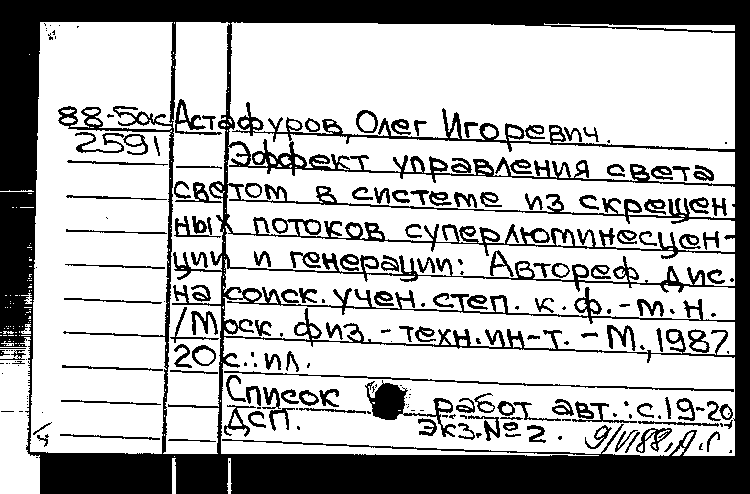 88-5окс Астафуров, Олег Игоревич.
2591 Эффект управления света
светом в системе из скрещен-
ных потоков суперлюминесцен-
ции и генерации: Автореф. дис.
на соиск. учен. степ. к. ф.-м. н.
/Моск. физ.-техн. ин-т. - М., 1987.
20 с.: ил.
Список работ авт.: с. 19-20
ДСП. Экз. № 2. 9/VI 88,